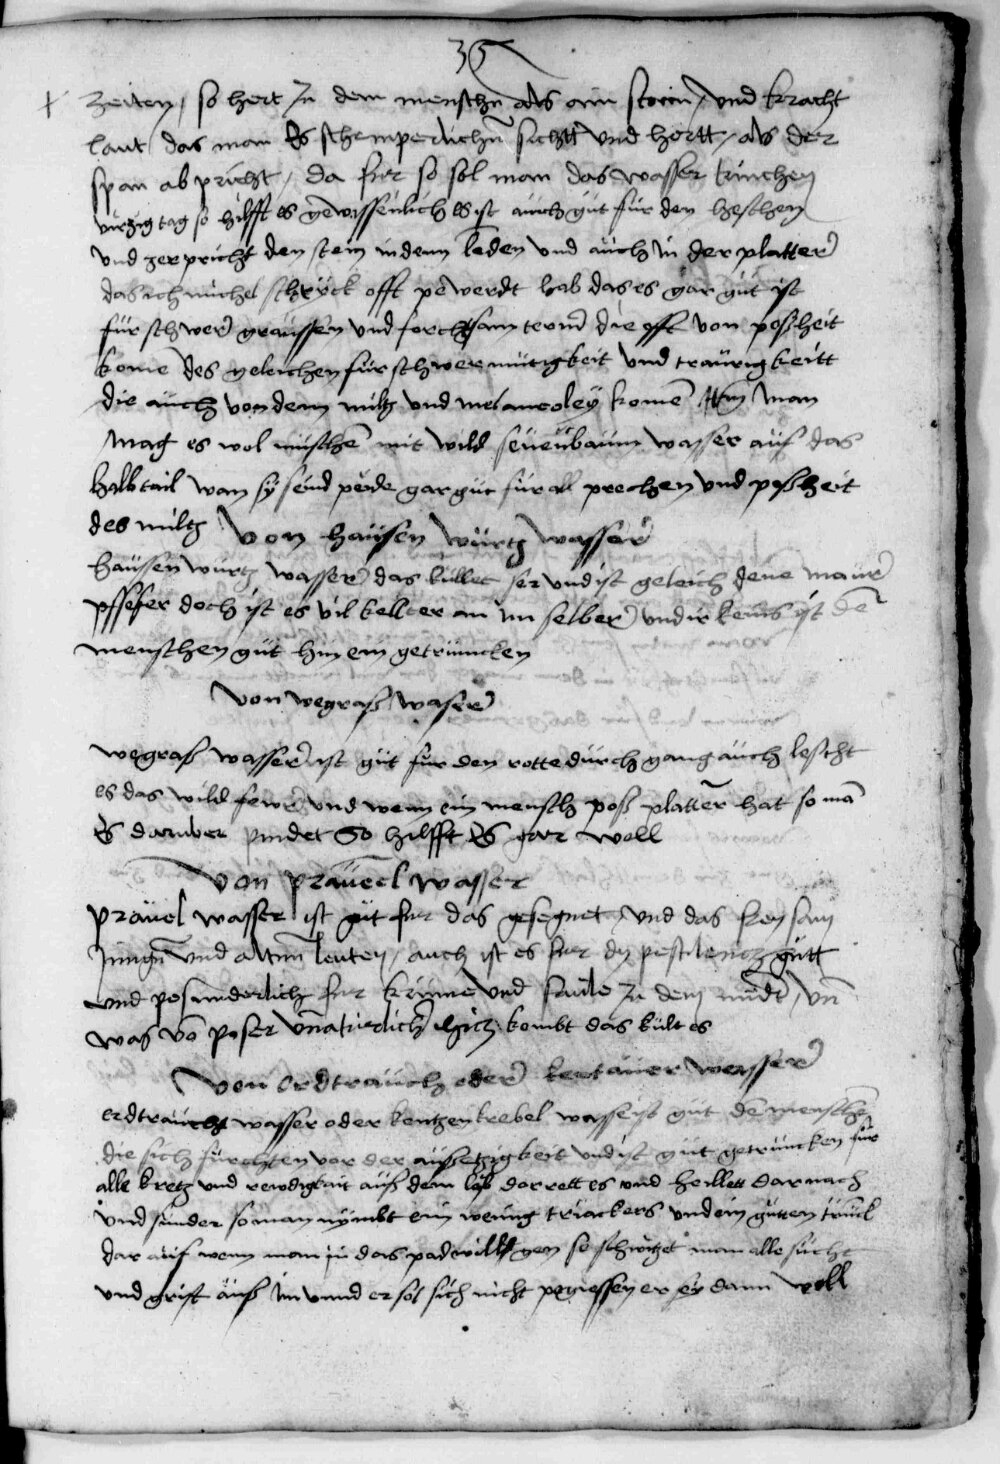 35
zeiten / so hert Zu dem menschn als ain stain / und kracht
laut das man Es schemperlichn sicht und hortt / als der
span ab pricht / da fur so sol man das wasser trinchen
virzig tag so hilfft es gewissenlich es ist auch güt für den heschen
und zerpricht den stein in denn lenden und auch in der platter
das ich michel schrick offt pewerdt hab das es gar güt ist
für schwer graussen und forchsam trom die offt von poßheit
kome des geleichen für schwermütigkeit und traurigkeitt
die auch von dem miltz und melancoley komen man
mag es wol mischen mit wild seuenbaum wasser auf das
halb tail wan sy seind peide gar güt für all prechen und poßheit
des miltz Von hausen würtz wasser
hausen würtz wasser das küllet ser und ist geleich dem maur
pfeffer doch ist es vil kellter an im selber und ir keins ist den
menschen güt hin ein getruncken
Von wegraß waser
wegraß wasser ist güt für den rotte durchgang auch lescht
es das wild fewr und wenn ein mensch poß platter hat so man
Es daruber pindet So hilfft Es gar woll
Von präunell wasser
präuel wasser ist güt fur das gesegnet und das freysam
Jungn und altnn leuten / auch ist es fur dy pestilentz gütt
und pesunderlich fur preune und faule Zu dem mudt / vn
was von poser unaturlicher hitz kombt das kült es
Von Erdtrauch oder kertzuer wasser
erdtraucht wasser oder kertzenkrebel wasser ist güt den menschen
die sich fürchten vor der aussetzigkeit und ist güt getruncken für
alle kretz und rewdigkait auß dem leib dorrett es und heillett darnach
und sunder so man nymbt ein wenig triackers und ein gütten trunck
dar auf wenn man in das pad will gen so schwitzet man alle sucht
und grift auß im und er sol sich nicht pegiessen er sey dann woll